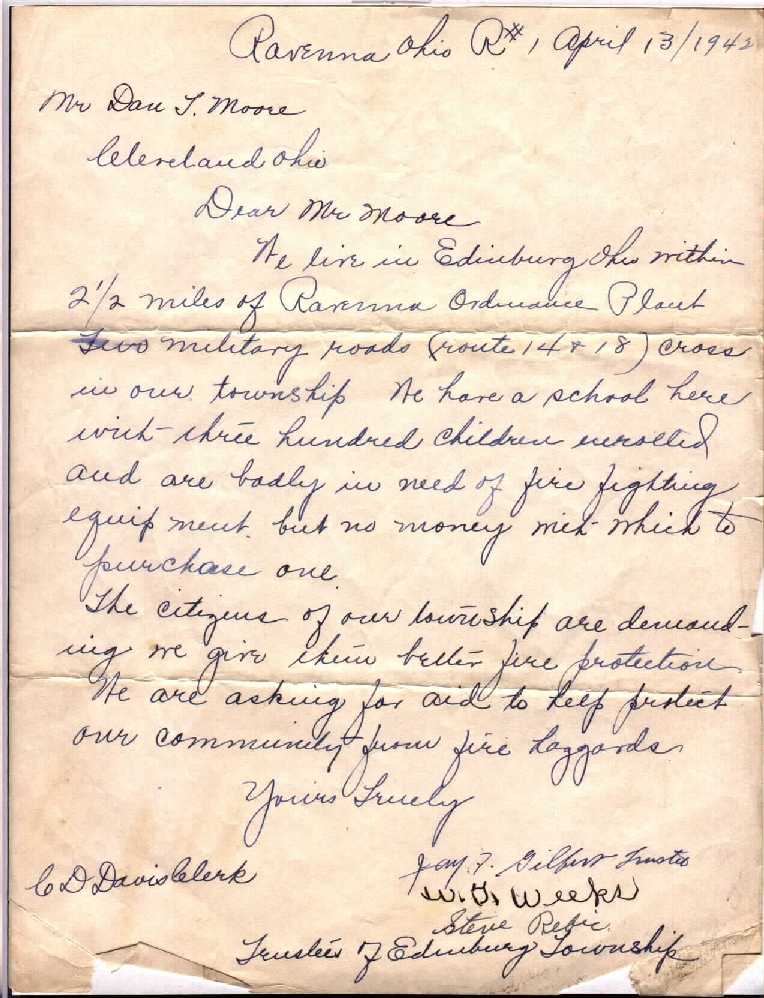 Ravenna Ohio R# 1 April 13/1942
Mr Dan T. Moore
Cleveland Ohio
Dear Mr Moore
We live in Edinburg Ohio within
2 1/2 miles of Ravenna Ordinance Plant
Two military roads (route 14 & 18) cross
in our township We have a school here
with three hundred children enrolled
and are badly in need of fire fighting
equipment. but no money with which to
purchase one.
The citizens of our township are demand-
ing we give them better fire protection
We are asking for aid to help protect
our community from fire haggards
Yours Truely
C D Davis Clerk
Jay. F. Gilbert Trustee
W. G. Weeks
Steve
Trustees of Edinburg Township